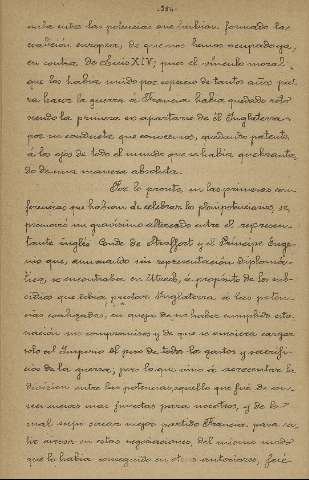 -384-
entre las potencias que habían formado la
coalición europea, de que nos hemos ocupado ya,
en contra de Luis XIV; pues el vínculo moral
que los había unido por espacio de tantos años pa-
ra hacer la guerra á Francia había quedado roto
siendo la primera en apartarse de él Inglaterra
por su conducta que conocemos, quedando patente
á los ojos de todo el mundo que se había quebranta-
do de una manera absoluta.
Por lo pronto, en las primeras con-
ferencias que hubieron de celebrar los plenipotenciarios, se
promovió un gravísimo altercado entre el represen-
tante inglés Conde de Strafford y el Príncipe Euge-
nio que, aun cuando sin representación diplomá-
tica, se encontraba en Utrech, á propósito de los sub-
sidios que debía prestar Inglaterra á las poten-
cias coaligadas, en queja de no haber cumplido esta
nación sus compromisos y de que se hubiera cargar
solo al Imperio el peso de todos los gastos y sacrifi-
cios de la guerra; pero lo que vino á acrecentar la
división entre las potencias, aquello que fué de con-
secuencias mas funestas para nosotros, y de lo
cual supo sacar mejor partido Francia para sa-
lir airosa en estas negociaciones, del mismo modo
que lo había conseguido en otras anteriores, fué